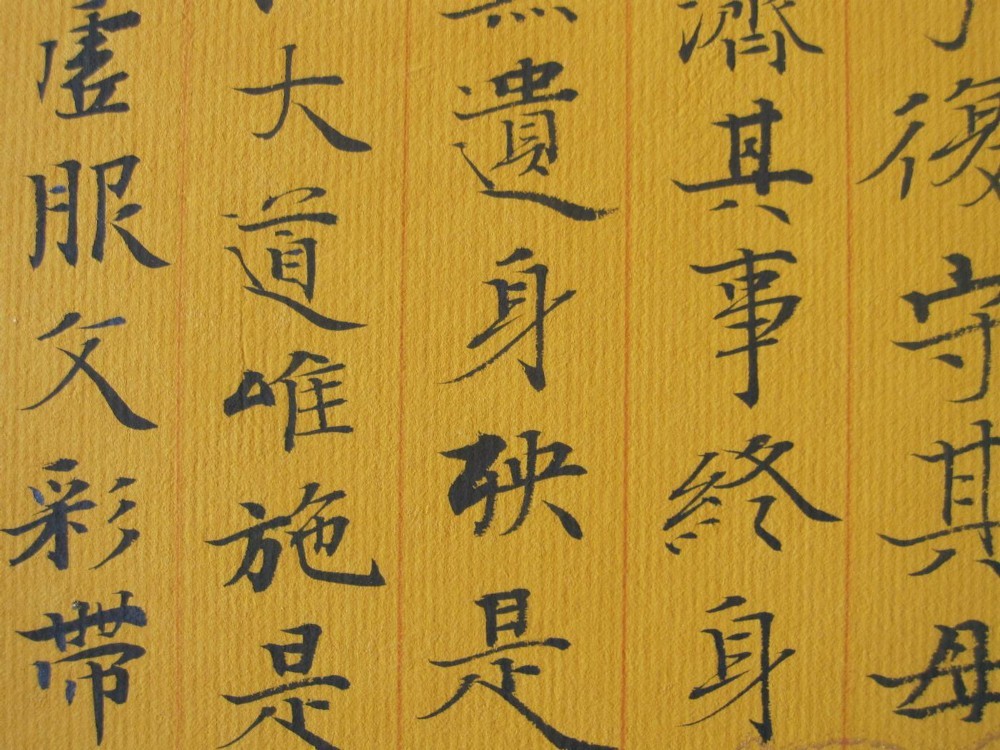 復守其母
濟其事終身
無遺身殃是
大道唯施是
虛服文彩帶